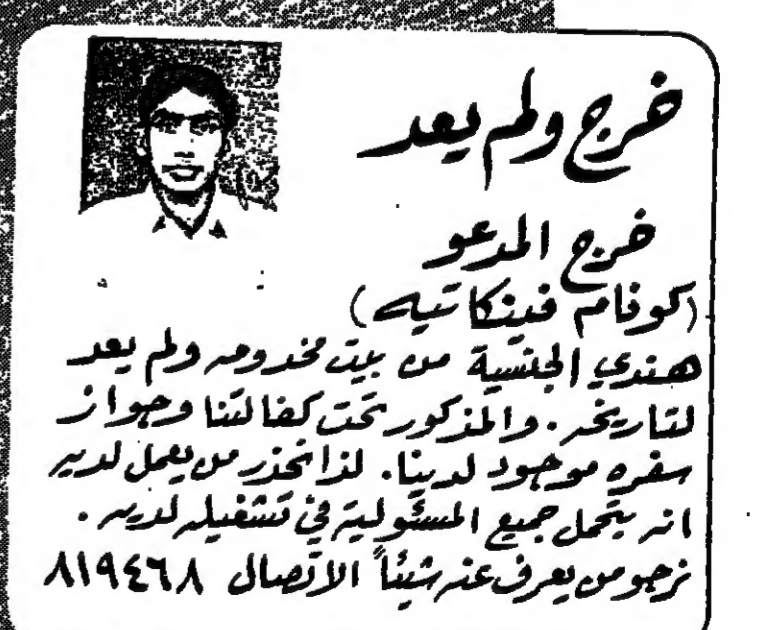 خرج ولم يعد
خرج المدعو
(كوفام فينكاتيه)
هندي الجنسية من بيت مخدومه ولم يعد
لتاريخه. والمذكور تحت كفالتنا وجواز
سفره موجود لدينا. لذا نحذر من يعمل لديه
انه يتحمل جميع المسئولية في تشغيله لديه.
نرجو من يعرف عنه شيئاً الاتصال ٨١٩٤٦٨